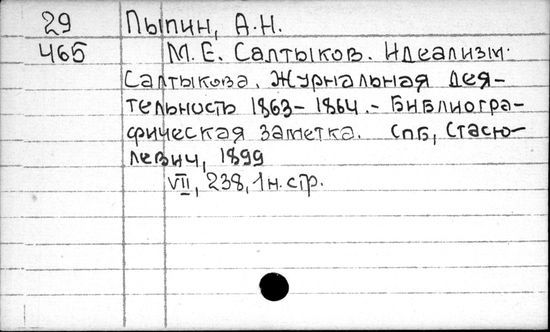 29 Пыпин, А.Н.
465 М.Е. Салтыков. Идеализм
Салтыкова. Журнальная дея-
тельность 1863-1864.- Библиогра-
фическая заметка. Спб, Стасю-
левич, 1899
VII, 238, 1 н. стр.